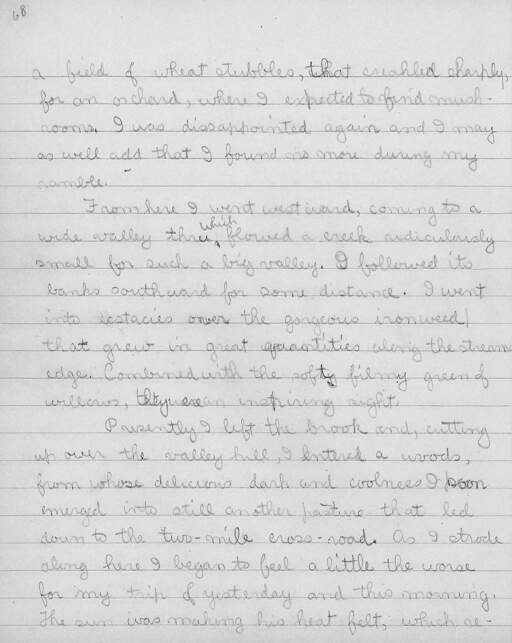 68
a field of wheat stubbles, that crashled sharply,
for an orchard, where I expected to find mush-
rooms. I was dissappointed again and I may
as well add that I found no more during my
ramble.
From here I went westward, coming to a
which
wide valley thru flowed a creek ridiculously
small for such a big valley. I followed its
banks southward for some distance. I went
into ecstacies over the gorgeous ironweed
that grew in great quantities along the stream
edge. Combined with the soft filmy green of
willows, they were an inspiring sight.
Presently I left the brook and, cutting
up over the valley hill, I entered a woods,
from whose delicious dark and coolness I soon
emerged into still another pasture that led
down to the two-mile cross-road. As I strode
along here I began to feel a little the worse
for my trip of yesterday and this morning.
The sun was making his heat felt, which re-